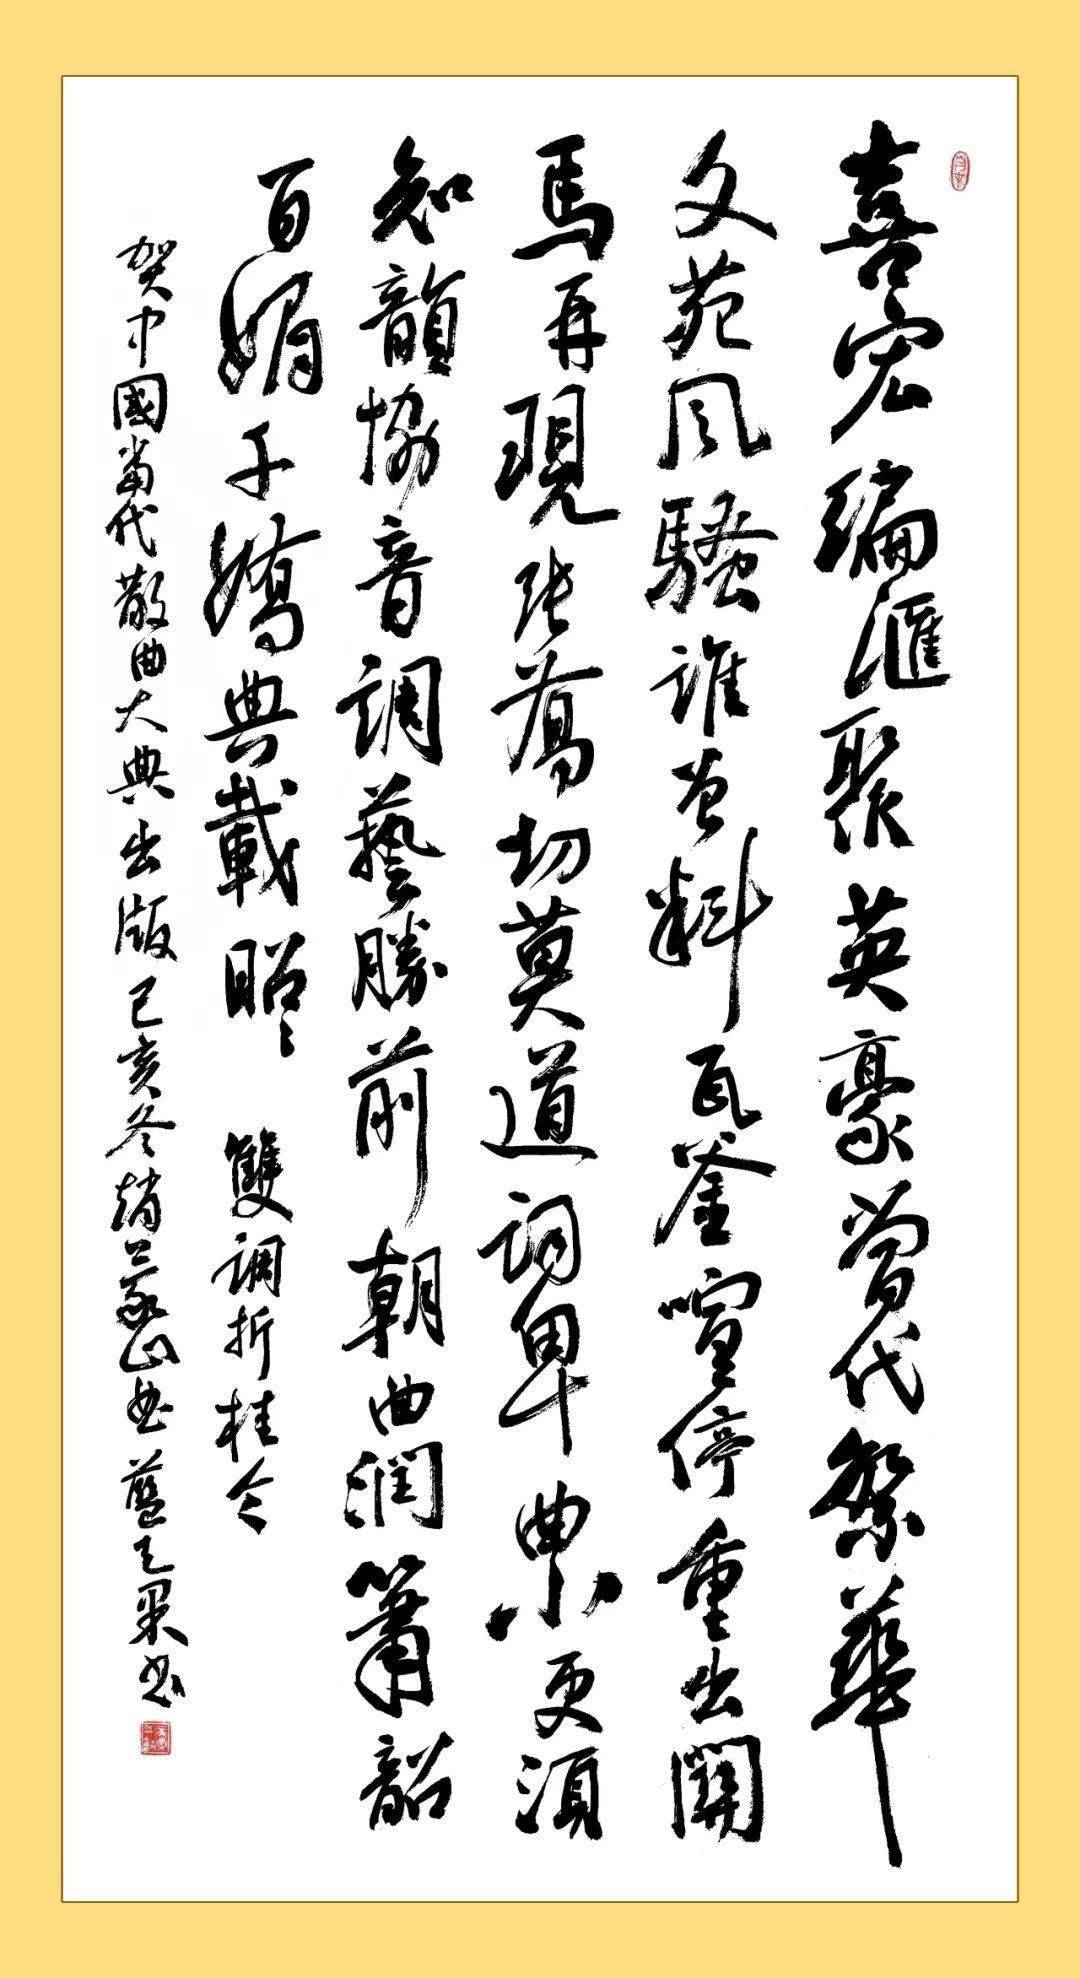 喜宏編滙聚英豪當代繁華
文苑風騷誰曾料瓦釜喧停重出關
馬再現張喬切莫道詞卑曲小更須
知韻協音調藝勝前朝曲潤簫韶
百媚千嬌典載昭昭 雙調折桂令
賀中國當代散曲大典出版己亥冬趙義山曲藍天果书